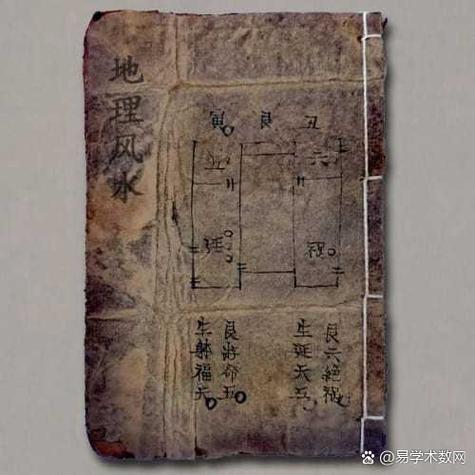 地理风水
寅 艮 丑
五 六
延 禍
艮六絕禍
生延天五
艮命五
生福
易学术数网